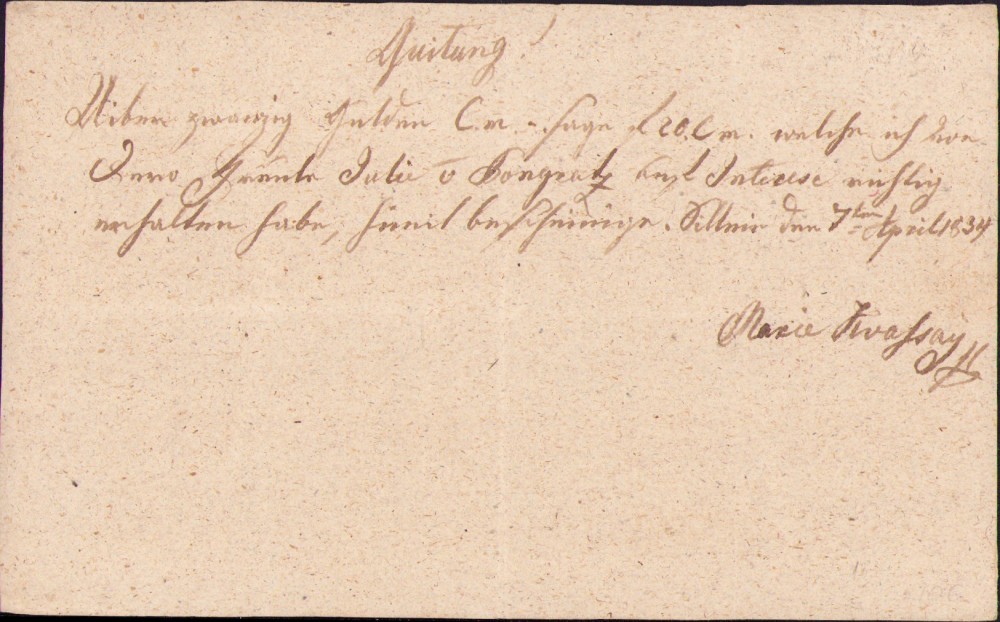 Quitung!
Uiber zwanzig Gulden C.m. sage f 20. C m. welche ich von
Julie v Pongratz auf Interese richtig
erhalten habe, hiemit bescheinige. Sillein den 7ten April 1834
Marie Kvassay